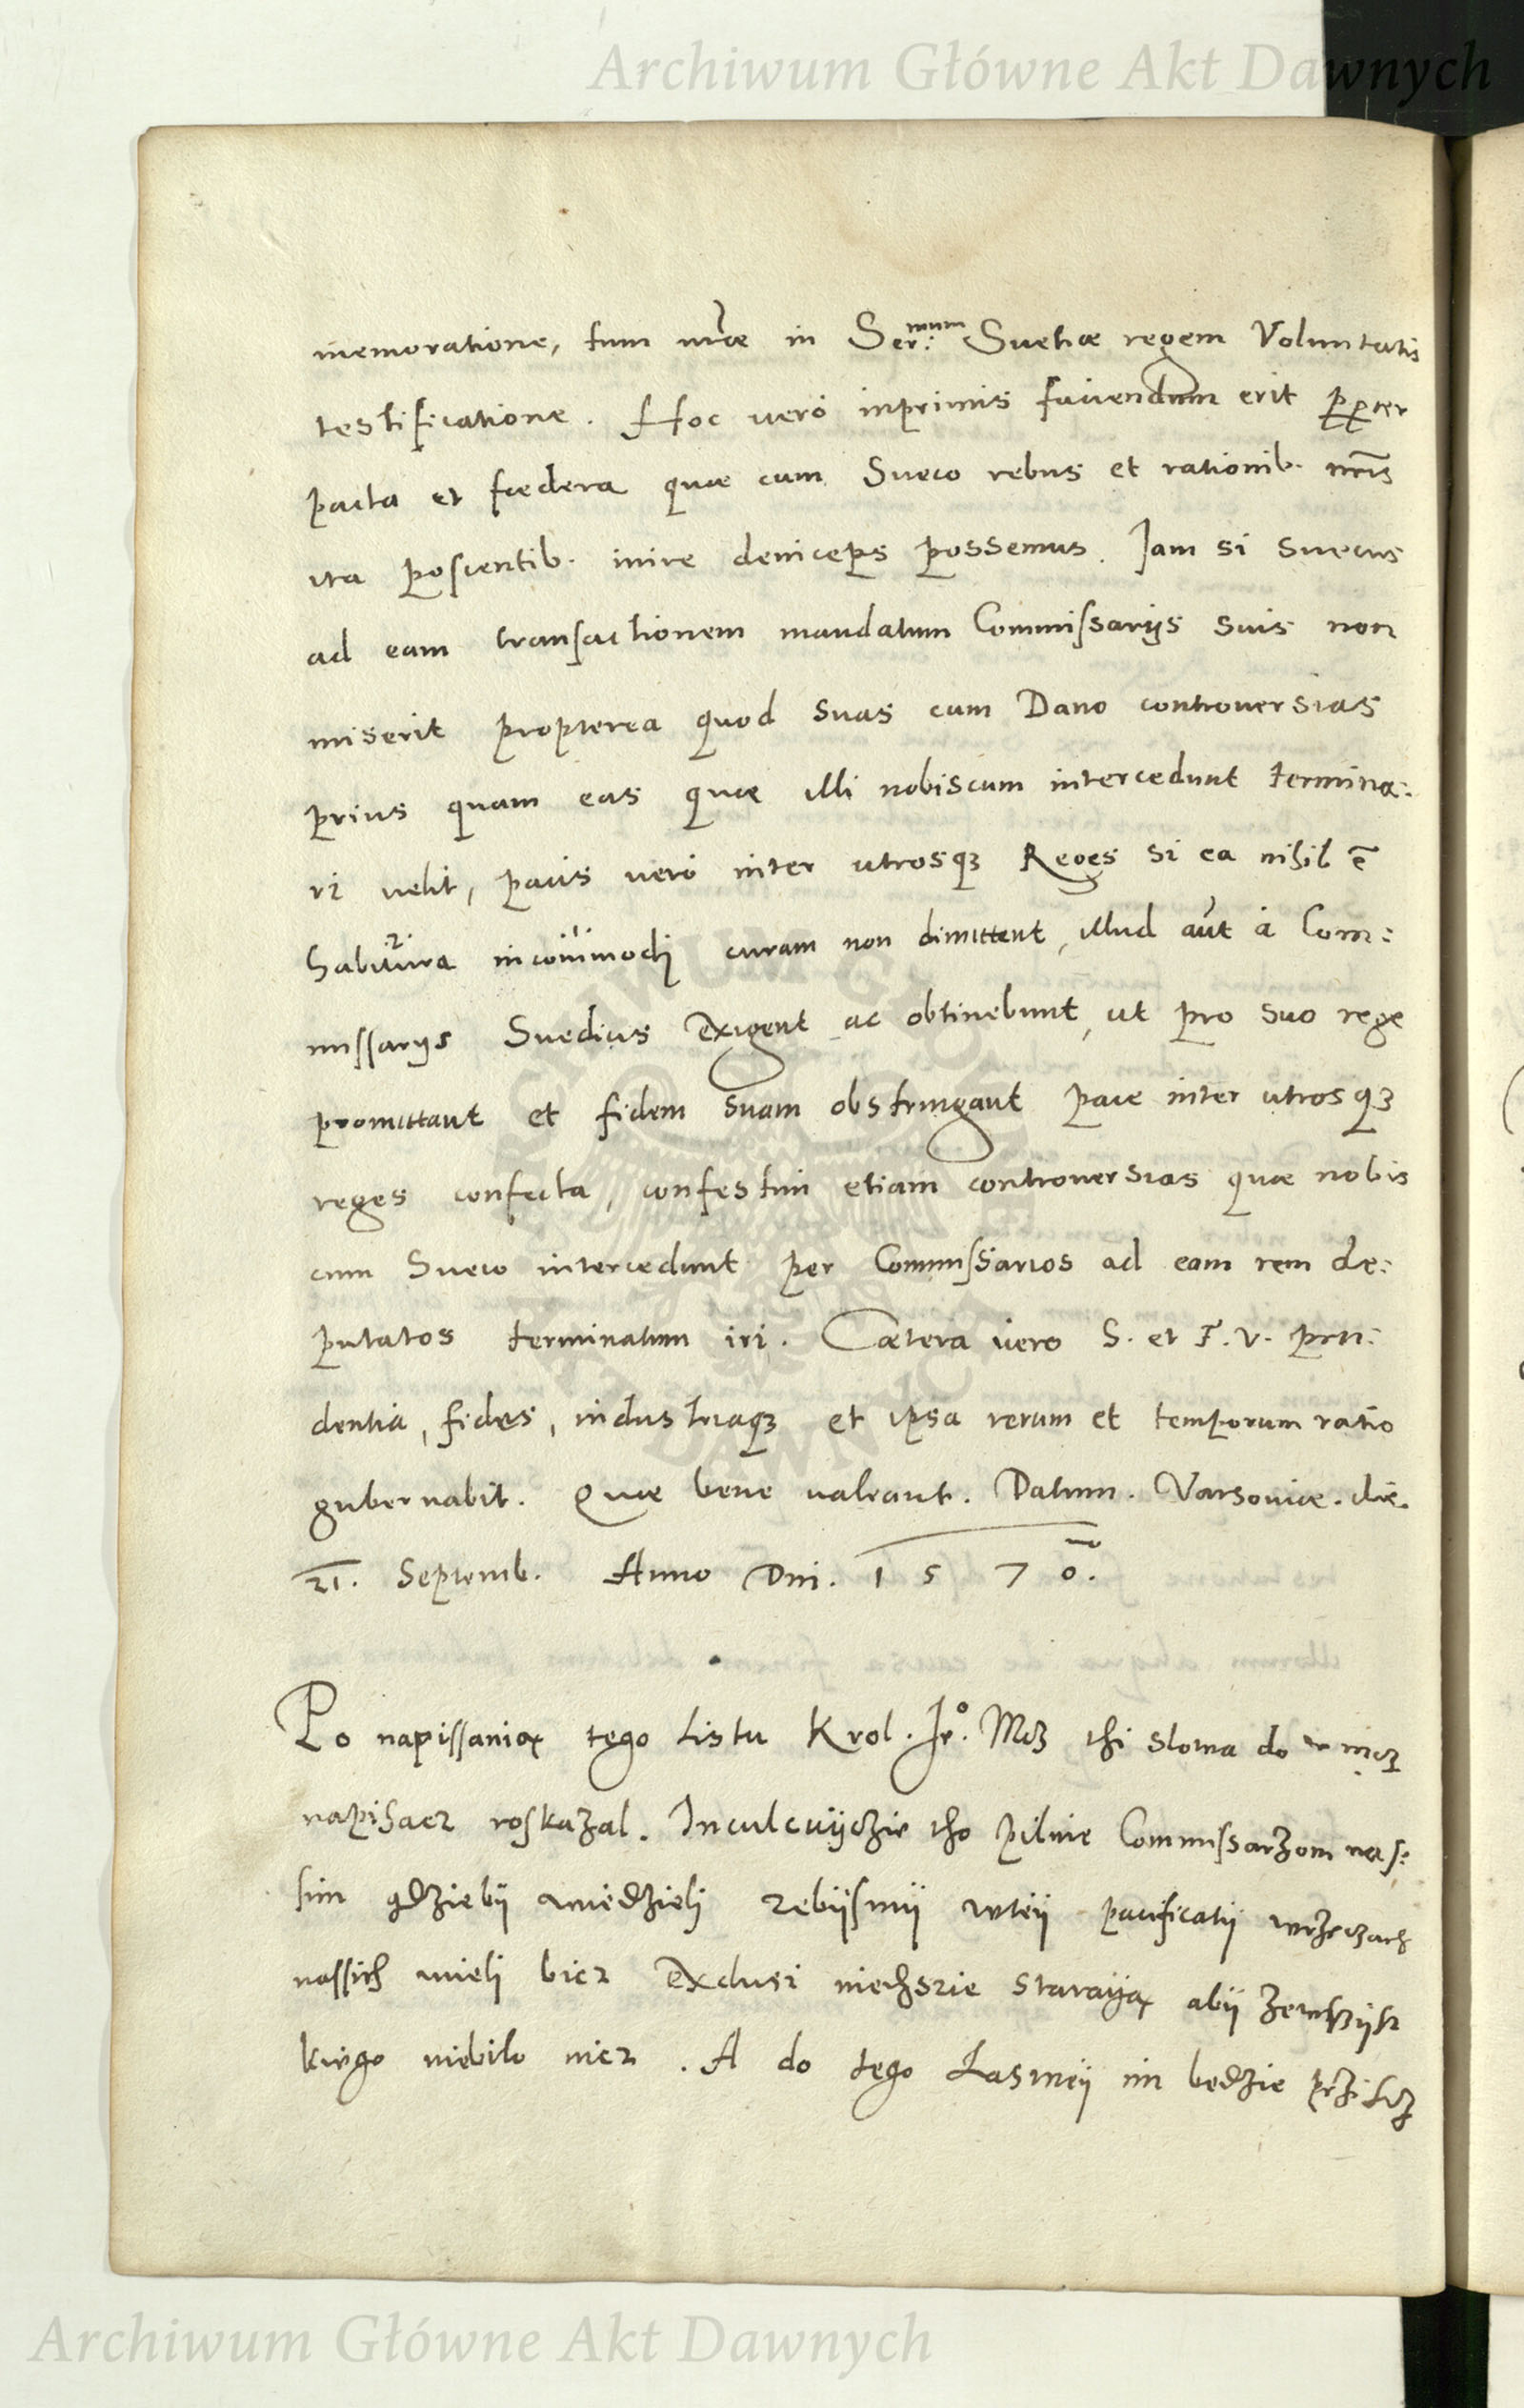 Archiwum Główne Akt Dawnych
memoratione, tum nr̃ae in Ser:mum Suetiæ regem Voluntatis
testificatione. Hoc vero inprimis faciendum erit ꝓpter
pacta et fœdera quæ cum Sueco rebus et rationib. nr̃is
ita poscentib. inire deniceps possemus. Jam si Suecus
ad eam transactionem mandatum Commissarijs suis non
miserit propterea quod suas cum Dano controuersias
prius quam eas quæ illi nobiscum intercedunt termina:
ri velit, pacis vero inter utrosqꝫ Reges si ea nihil ẽ
habitura incommodi curam non dimittent, illud aũt à Com:
missarijs Suedicis exigent ac obtinebunt, ut pro suo rege
promittant et fidem suam obstringant pace inter utrosqꝫ
reges confecta, confestim etiam controuersias quæ nobis
cum Sueco intercedunt per Commissarios ad eam rem de:
putatos terminatum iri. Cætera vero S. et F. V. pru:
dentia, fides, industriaqꝫ et ipsa rerum et temporum ratio
gubernabit. Quæ bene valeant. Datum. Varsoviæ. die.
21. Septemb. Anno Dni. 1570.
Po napissanią tego Listu Krol. Je⁰. Mcz thi slowa do w mcz
napisacz roskazal. Inculcuijczie tho pilnie Commissarzom nas:
sim gdziebÿ wiedzieli zebijsmÿ wteÿ pacificatÿ wrzeczach
nassich mieli bicz exclusi niechszie staraiją abÿ zewszÿst
kiego niebilo nicz. A do tego Lasneÿ im bedzie przilicz
ARCHIWUM GŁÓWNE AKT DAWNYCH
Archiwum Główne Akt Dawnych